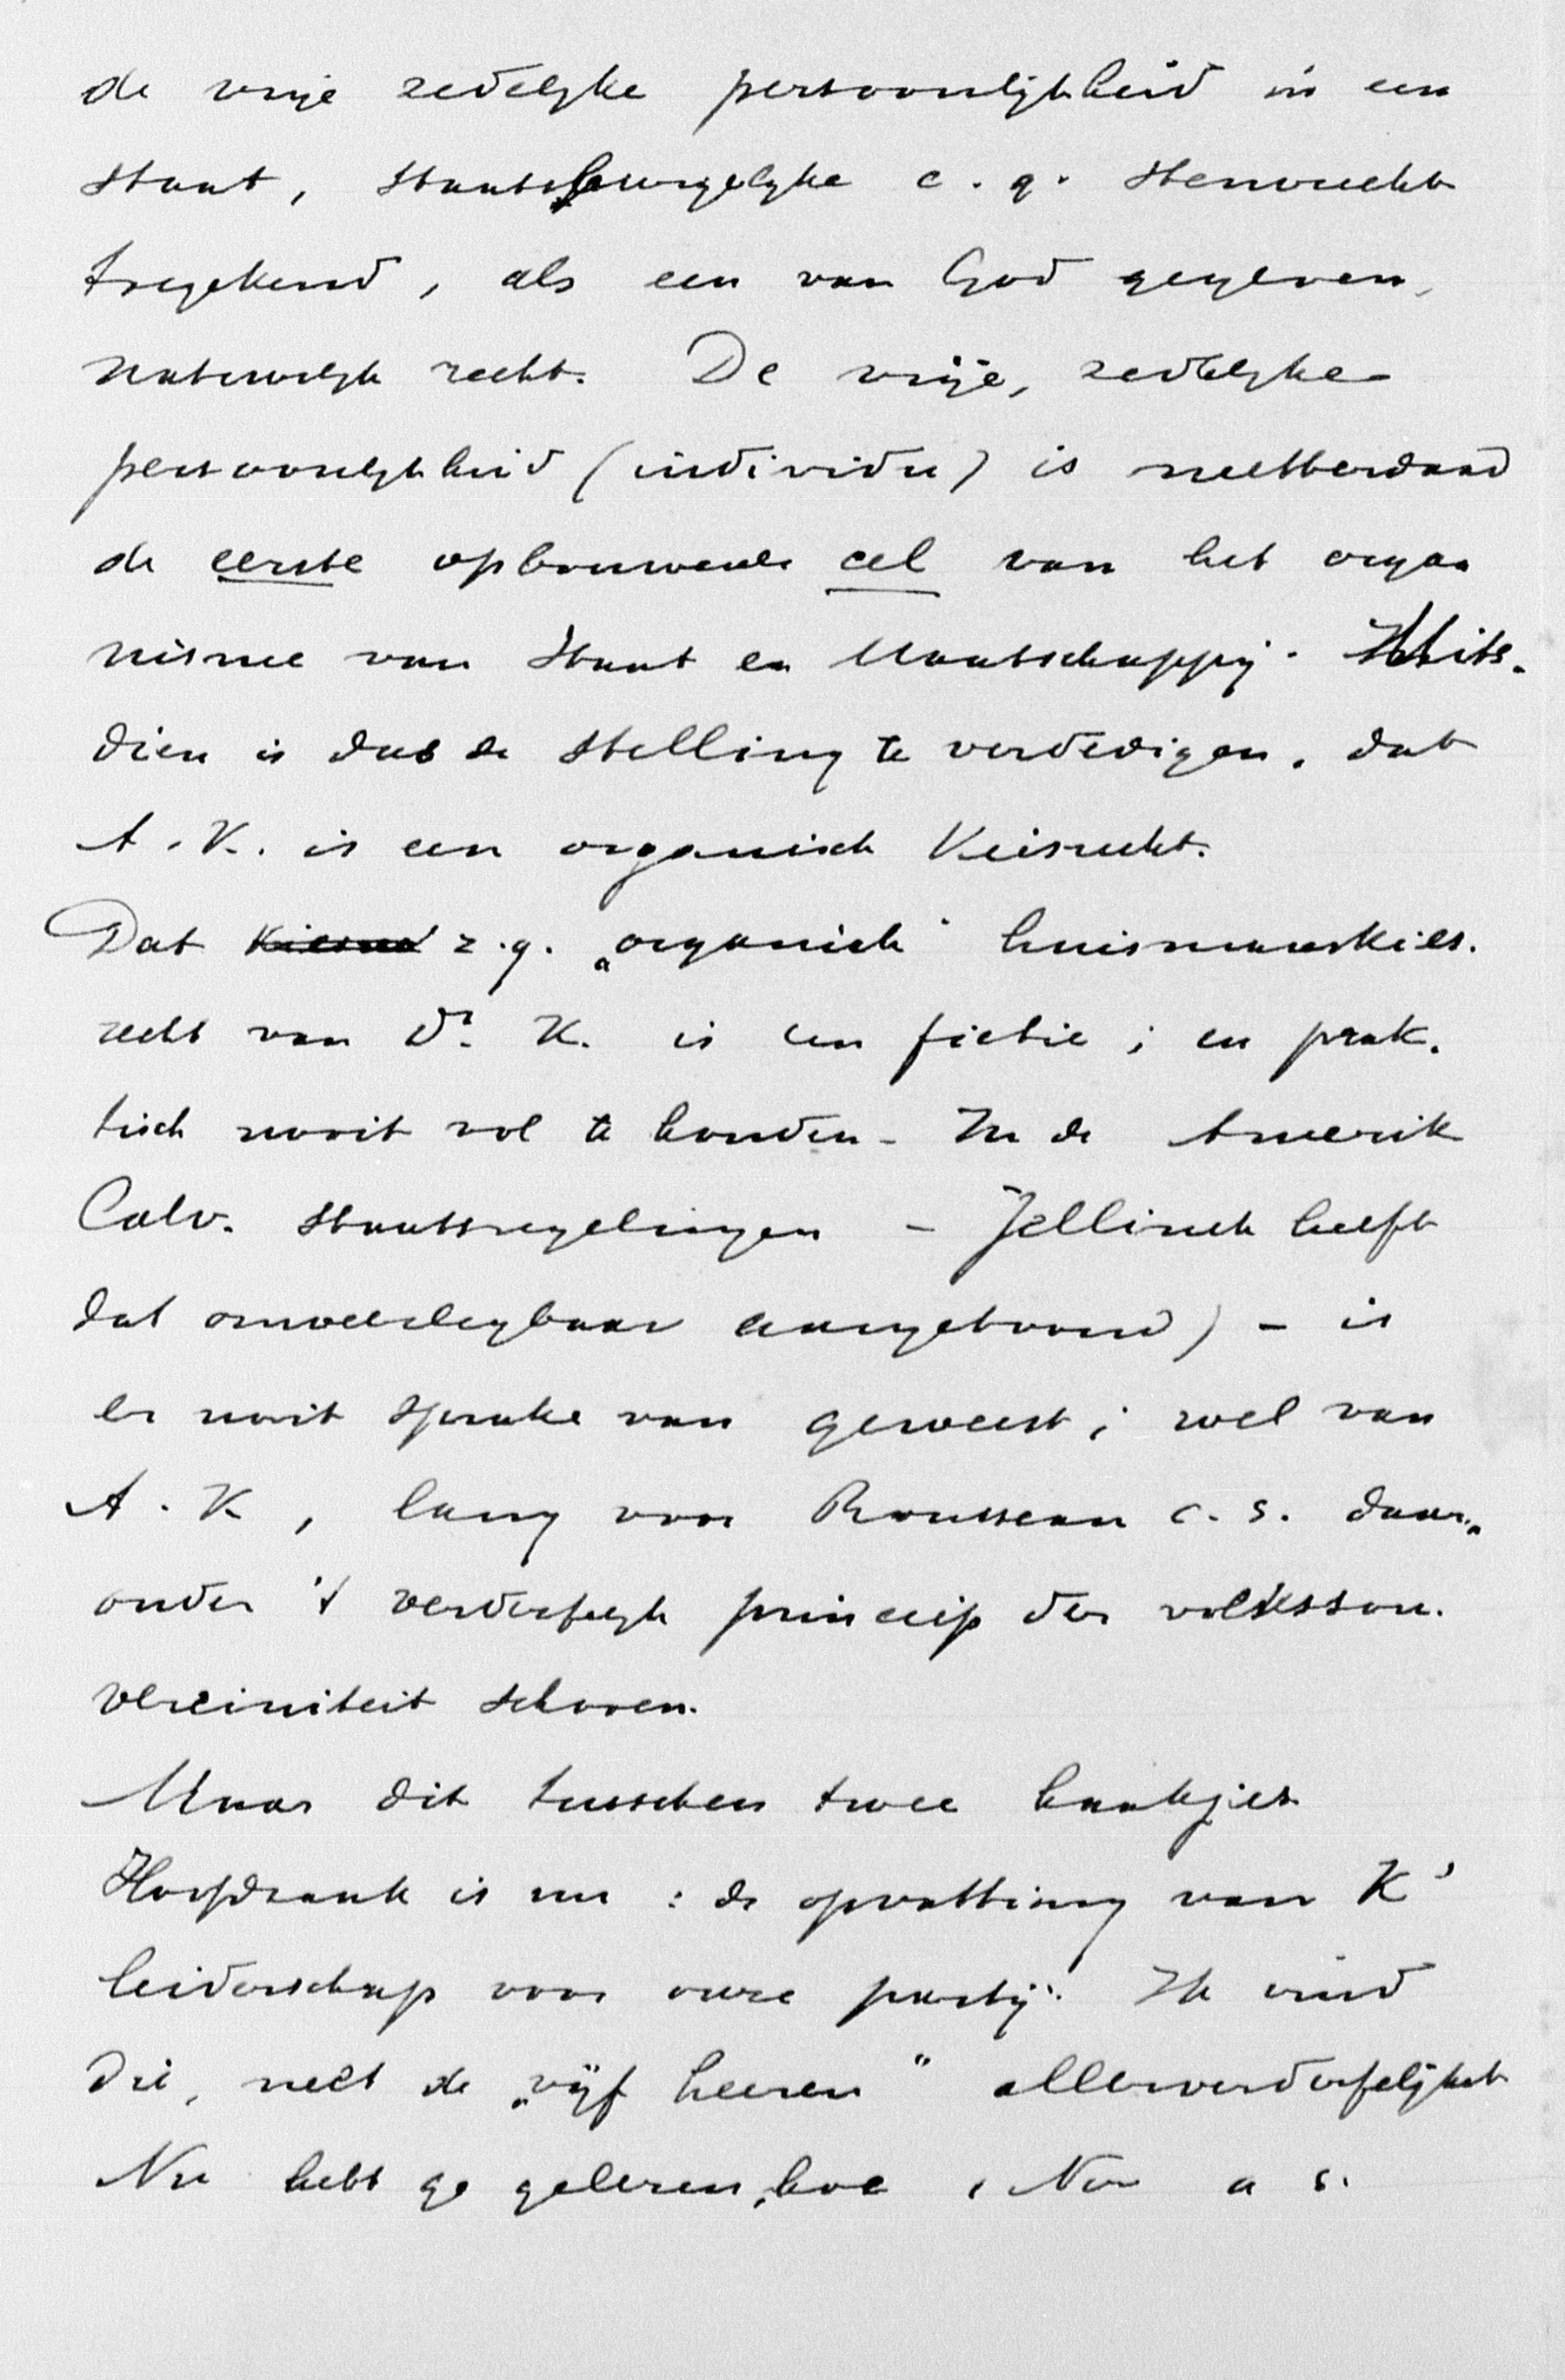 de vrije zedelyke persoonlijkheid in een
staat, staatsburgerlyke c.q. stemrecht
toegekend, als een van God gegeven,
natuurlyk recht. De vrije, zedelyke
persoonlykheid (individu) is metterdaad
de eerste opbouwende cel van het orga
nisme van Staat en Maatschappij. Mits-
dien is dus de stelling te verdedigen, dat
A.K. is een organisch Kiesrecht.
Dat z.g. „organisch" huismanskies-
recht van Dr. K. is een fictie; en prak-
tisch nooit vol te houden - In de Amerik
Calv. staatsregelingen - Jellineh heeft
dat onweerlegbaar aangetoond) - is
er nooit sprake van geweest; wel van
A.K, lang voor Rousseau c.s. daar„
onder 't verderfelyk principe der volkssou-
vereiniteit schoven.
Maar dit tusschen twee haakjes
Hoofdzaak is nu: de opvatting van K's
leiderschap voor onze partij. Ik vind
die, met de „vijf heeren" allerverderfelijkst
Nu hebt ge gelezen, hoe , N a s.